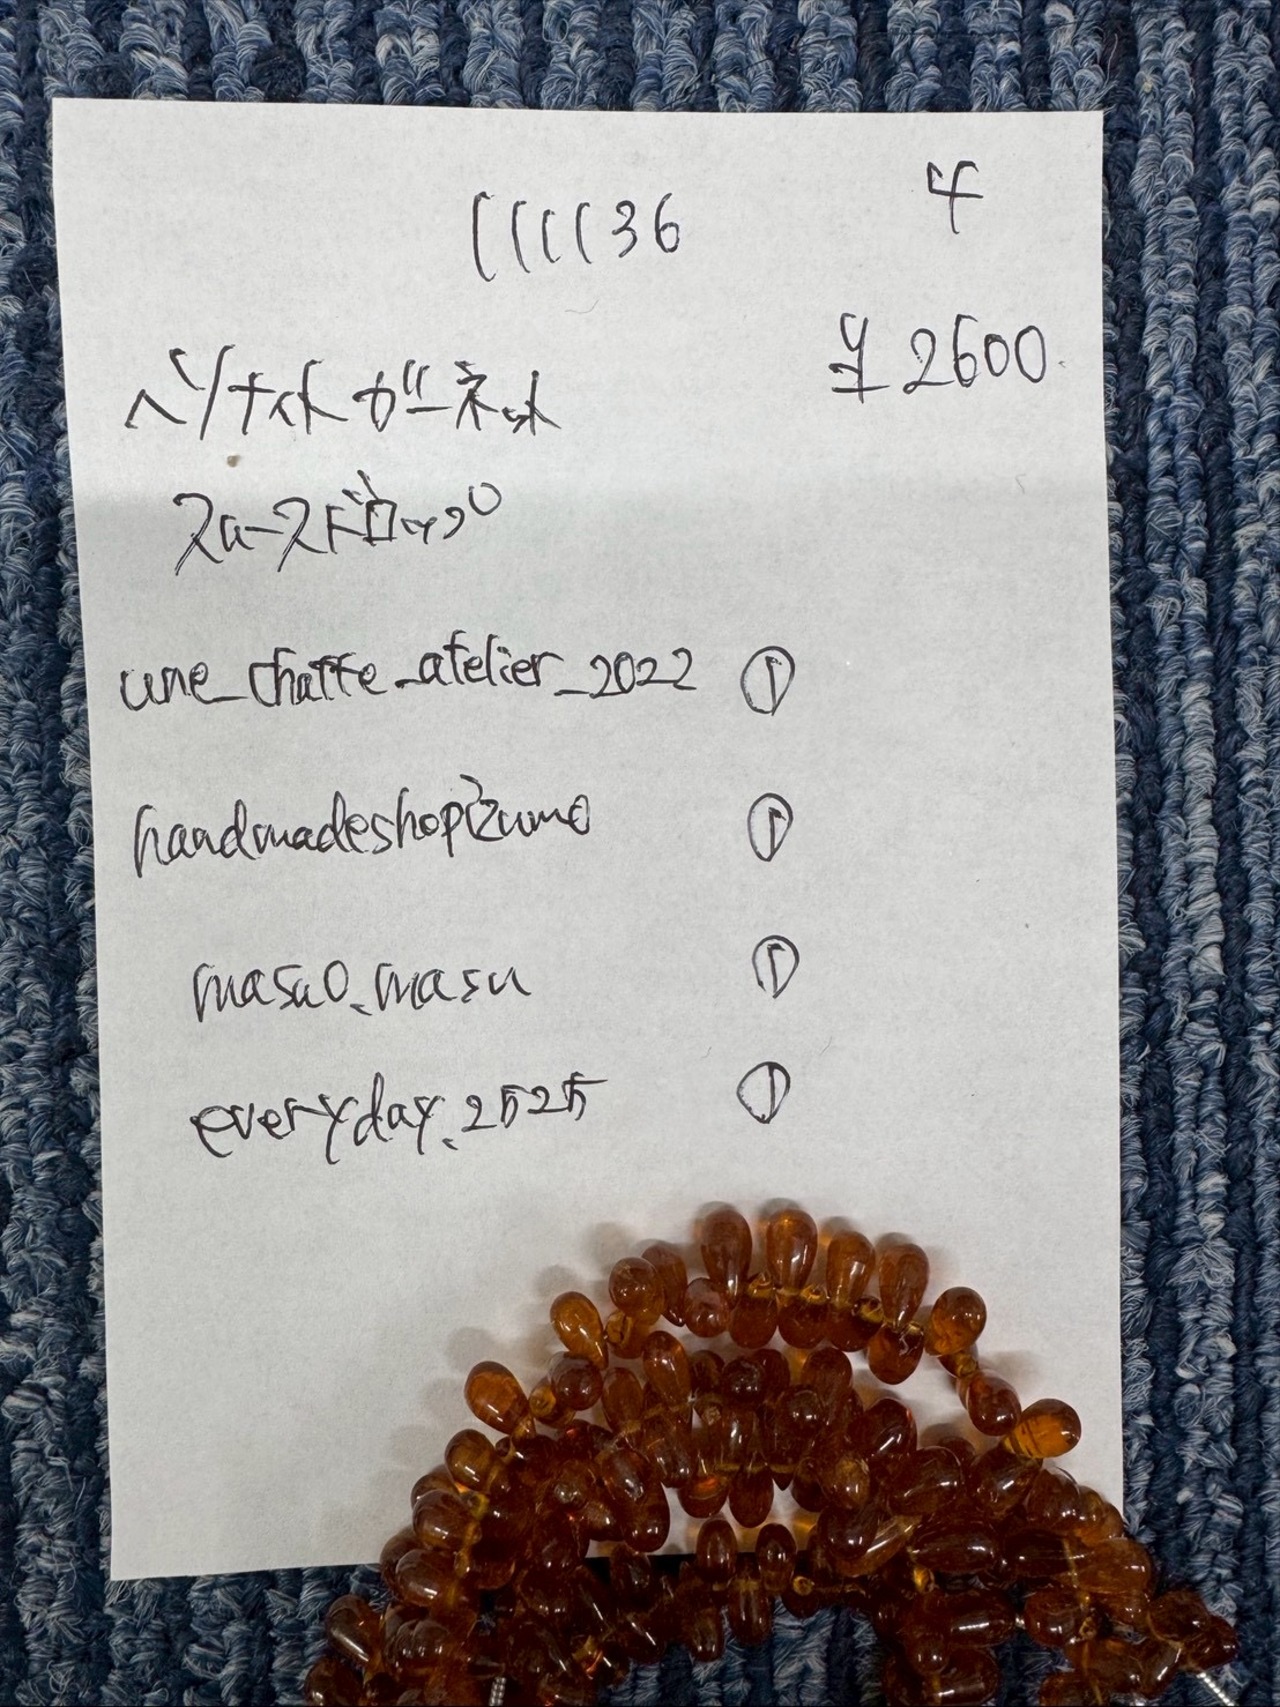 111136
4
¥2600
ヘソナイトガーネット
スムースドロップ
une_chatte_atelier_2022 ①
handmadeshopizumo ①
masao.masu ①
everyday.2525 ①